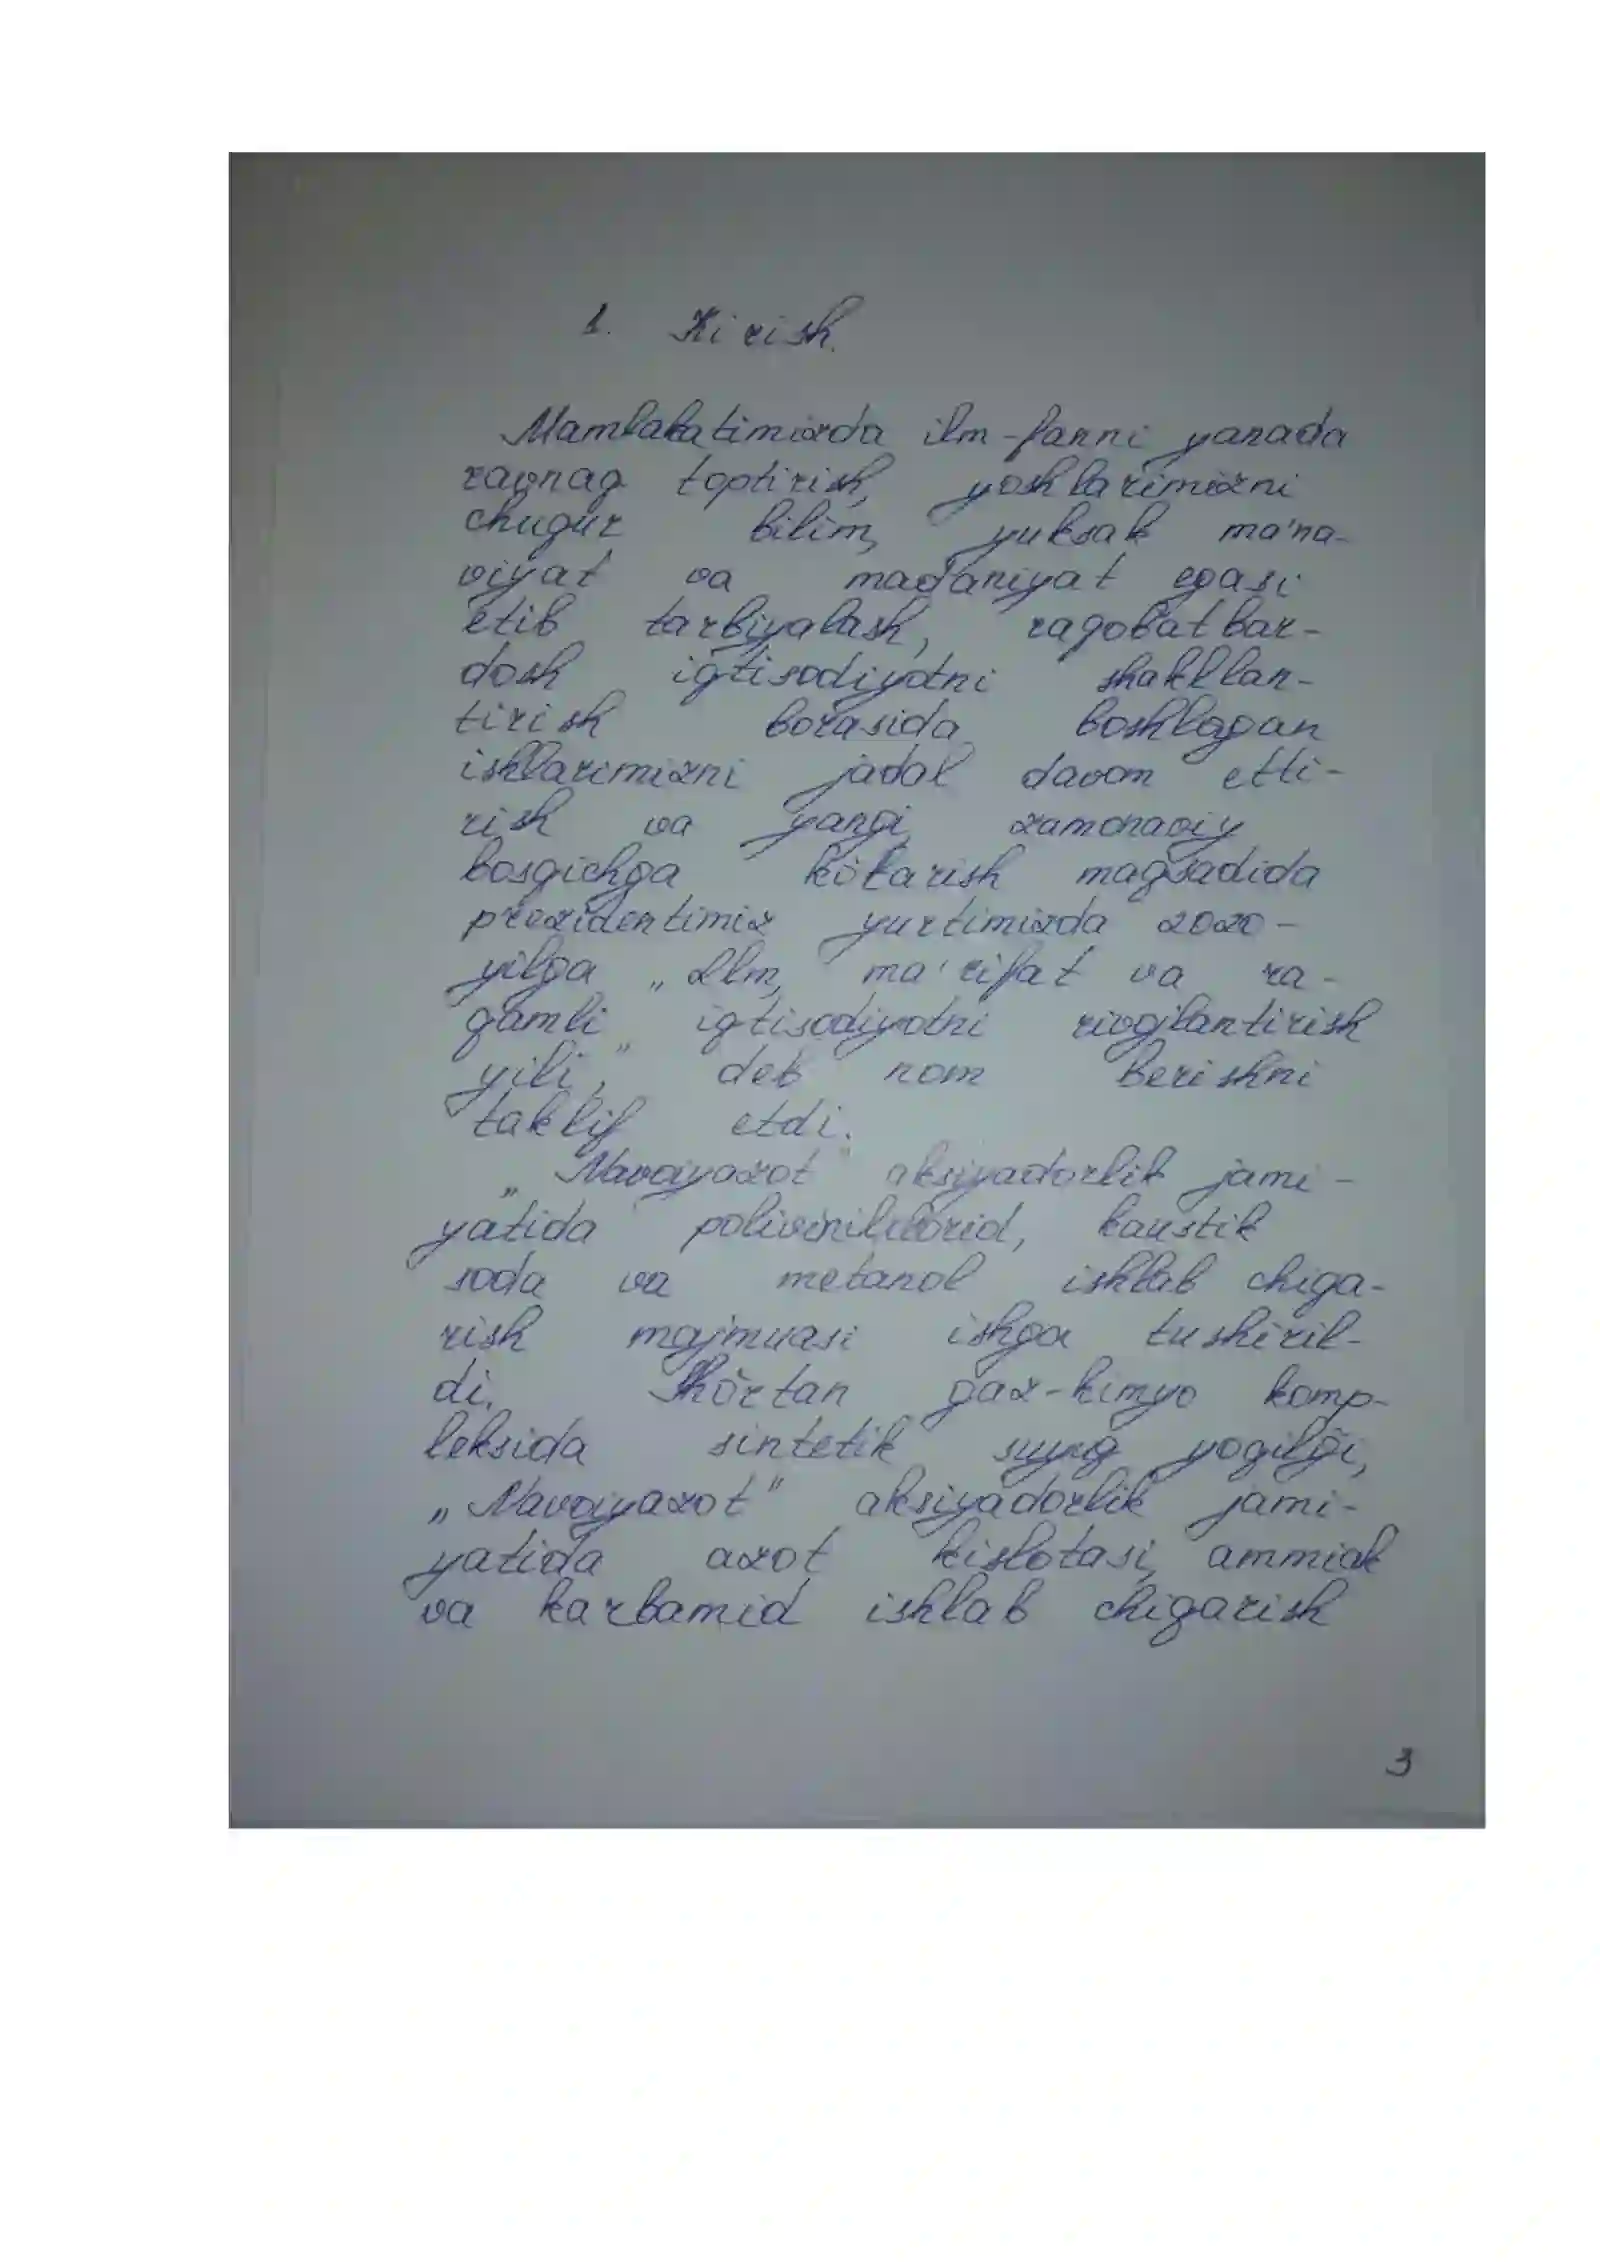 1. Kirish.
Mamlakatimizda ilm-fanni yanada
ravnaq toptirish, yoshlarimizni
chuqur bilim, yuksak ma'na-
viyat va madaniyat egasi
etib tarbiyalash, raqobatbar-
dosh iqtisodiyotni shakllan-
tirish borasida boshlagan
ishlarimizni jadal davom etti-
rish va yangi zamonaviy
bosqichga kõtarish maqsadida
prezidentimiz yurtimizda 2020-
yilga „Ilm, ma'rifat va ra-
qamli iqtisodiyotni rivojlantirish
yili," deb nom berishni
taklif etdi.
„Navoiyazot" aksiyadorlik jami-
yatida polivinilxlorid, kaustik
soda va metanol ishlab chiqa-
rish majmuasi ishga tushiril-
di. Shõrtan gaz-kimyo komp-
leksida sintetik suyuq yoqilg̃i,
„Navoiyazot" aksiyadorlik jami-
yatida azot kislotasi, ammiak
va karbamid ishlab chiqarish
3